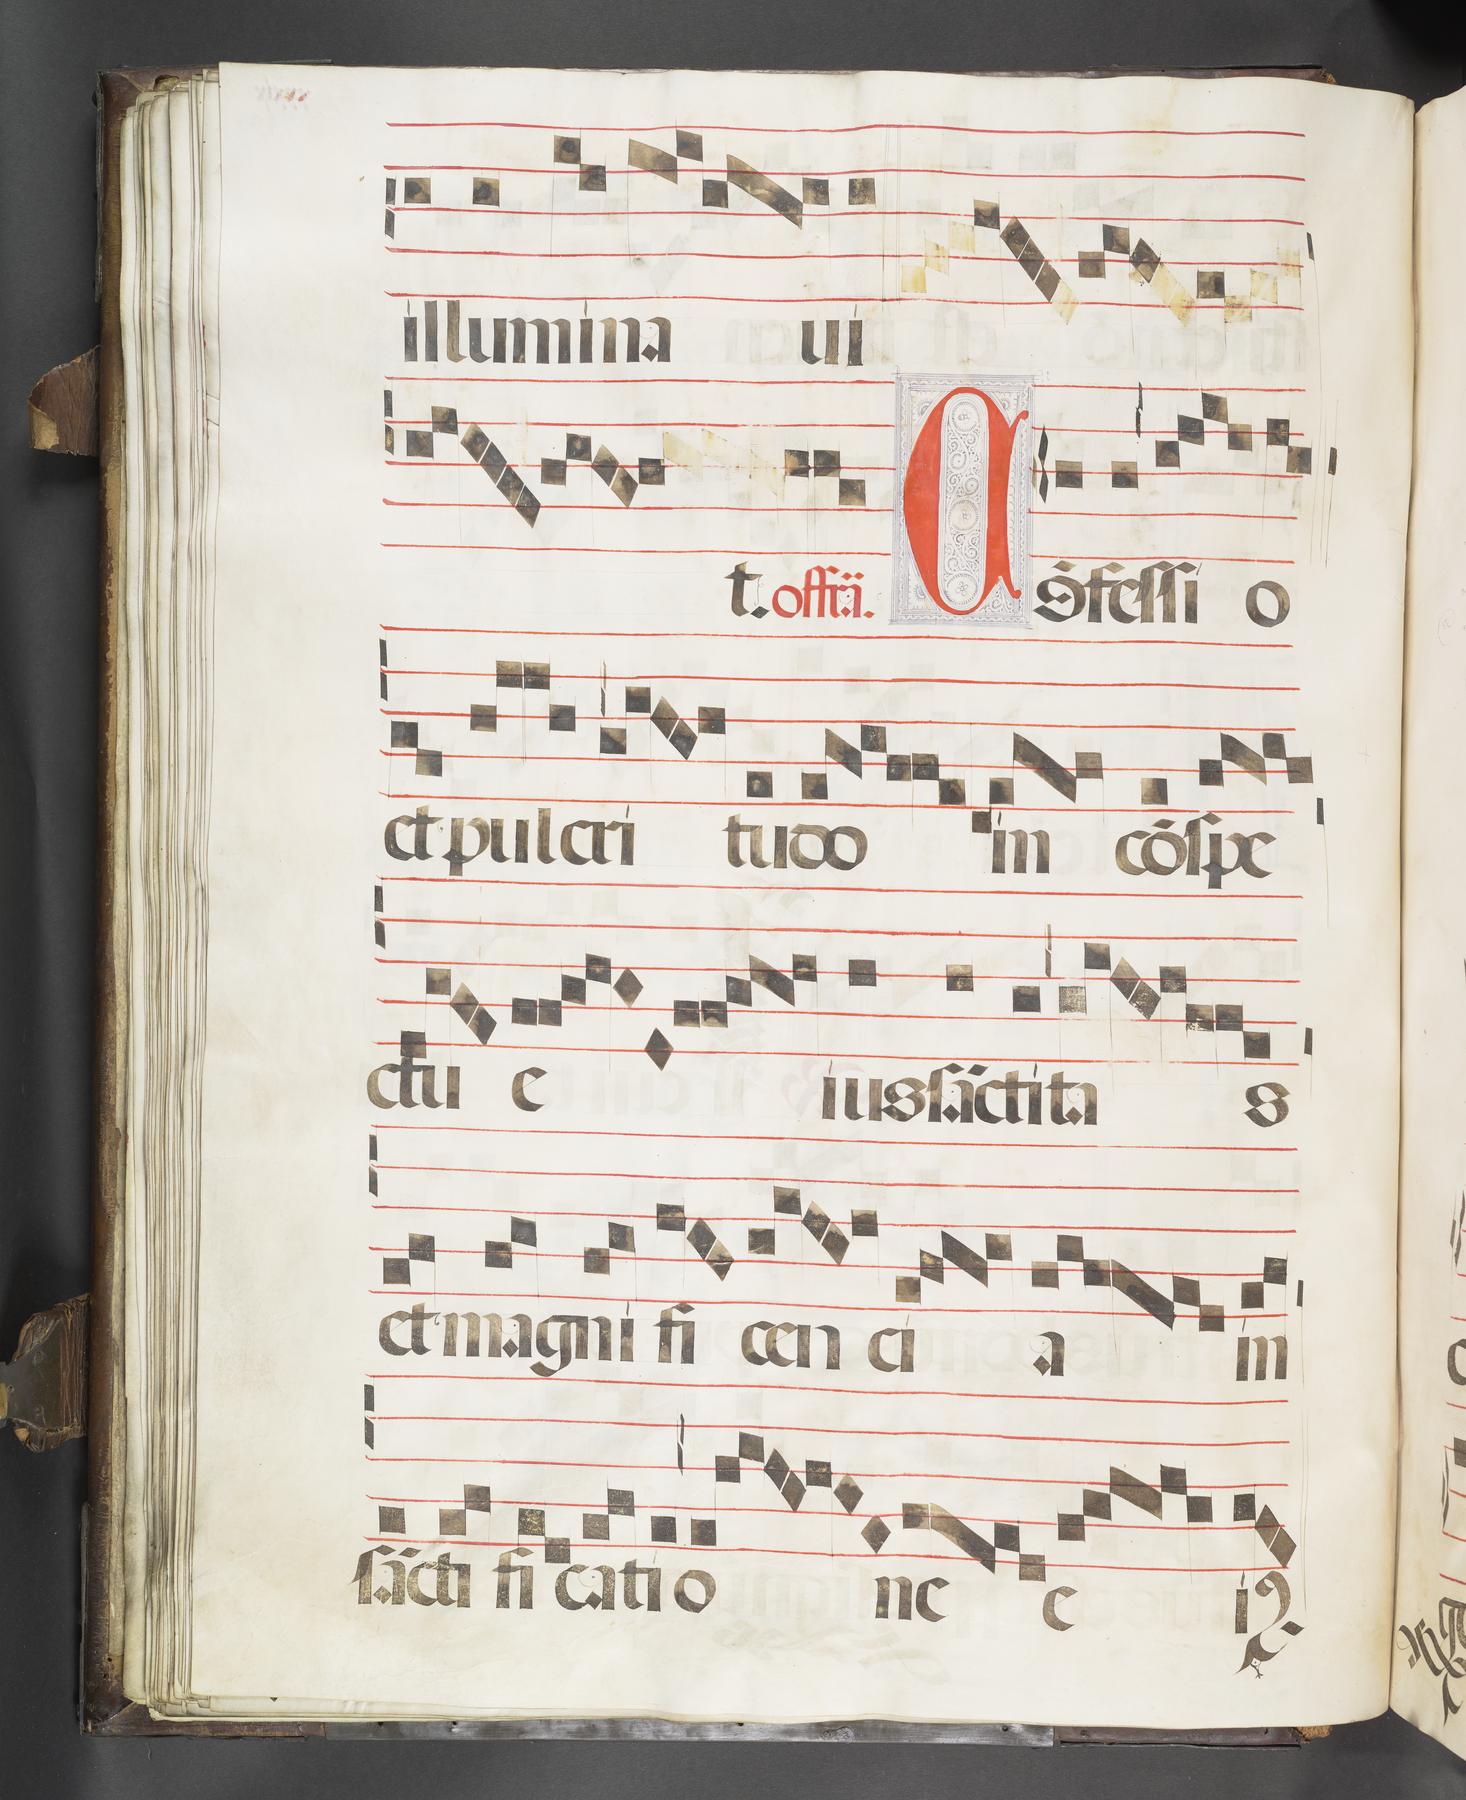 illumina ui
t. offr̃i. Cõfessi o
et pulcri tudo in cõspe
ctu e ius sãctita s
et magni fi cen ci a in
sãcti fi catio ne e i9